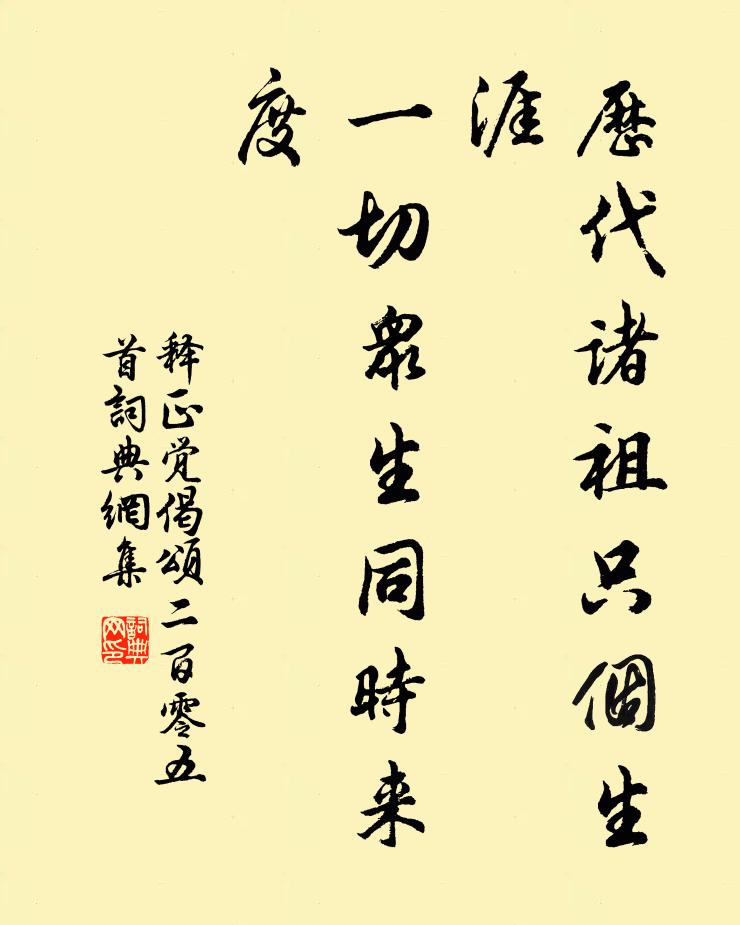 歷代諸祖只個生
涯
一切眾生同時来
度
释正觉偈頌二百零五
首詞典網集
詞典
网印